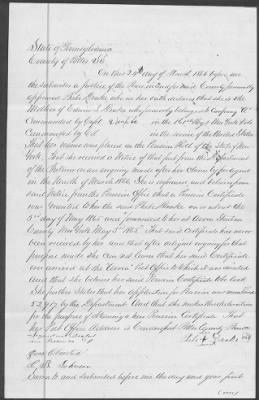 State of Pennsylvania
County of Potter SS
On this 24th day of March 1866 before me
the subscriber a Justice of the Peace in and for said County personally
appeared Phebe Drake who on her oath declares that she is the
Mother of Edwin S. Drake who formerly belonged to Company "A"
Commanded by Capt. in the 161st Regt New York Vols
Commanded by Col in the service of the United States
That her name was placed on the Pension Roll of the State of New
York. That she received a Notice of that fact from the Department
of the Interior on an inquiry made after Moses by her Agent
in the Month of March 1866. She is informed and believes from
said Notice from the Pension Office that a Pension Certificate
was granted to her the said Phebe Drake on or about the
3d day of May 1865 and forwarded to her at Avoca Steuben
County New York May 3d 1865. That said Certificate has never
been received by her and that after diligent inquiry for that
purpose made She can not learn that her said Certificate
ever arrived at the Avoca Post Office to which it was directed
and that she believes her said Pension Certificate was lost
She further states that her application for Pension was numbered
52,977 by the Department. And that she makes this declaration
for the purpose of obtaining a new Pension Certificate. That
her Post Office Address is Potter County Penna
Phebe Drake
C. B. Johnson
Sworn to and subscribed before me the day and year first
(over)